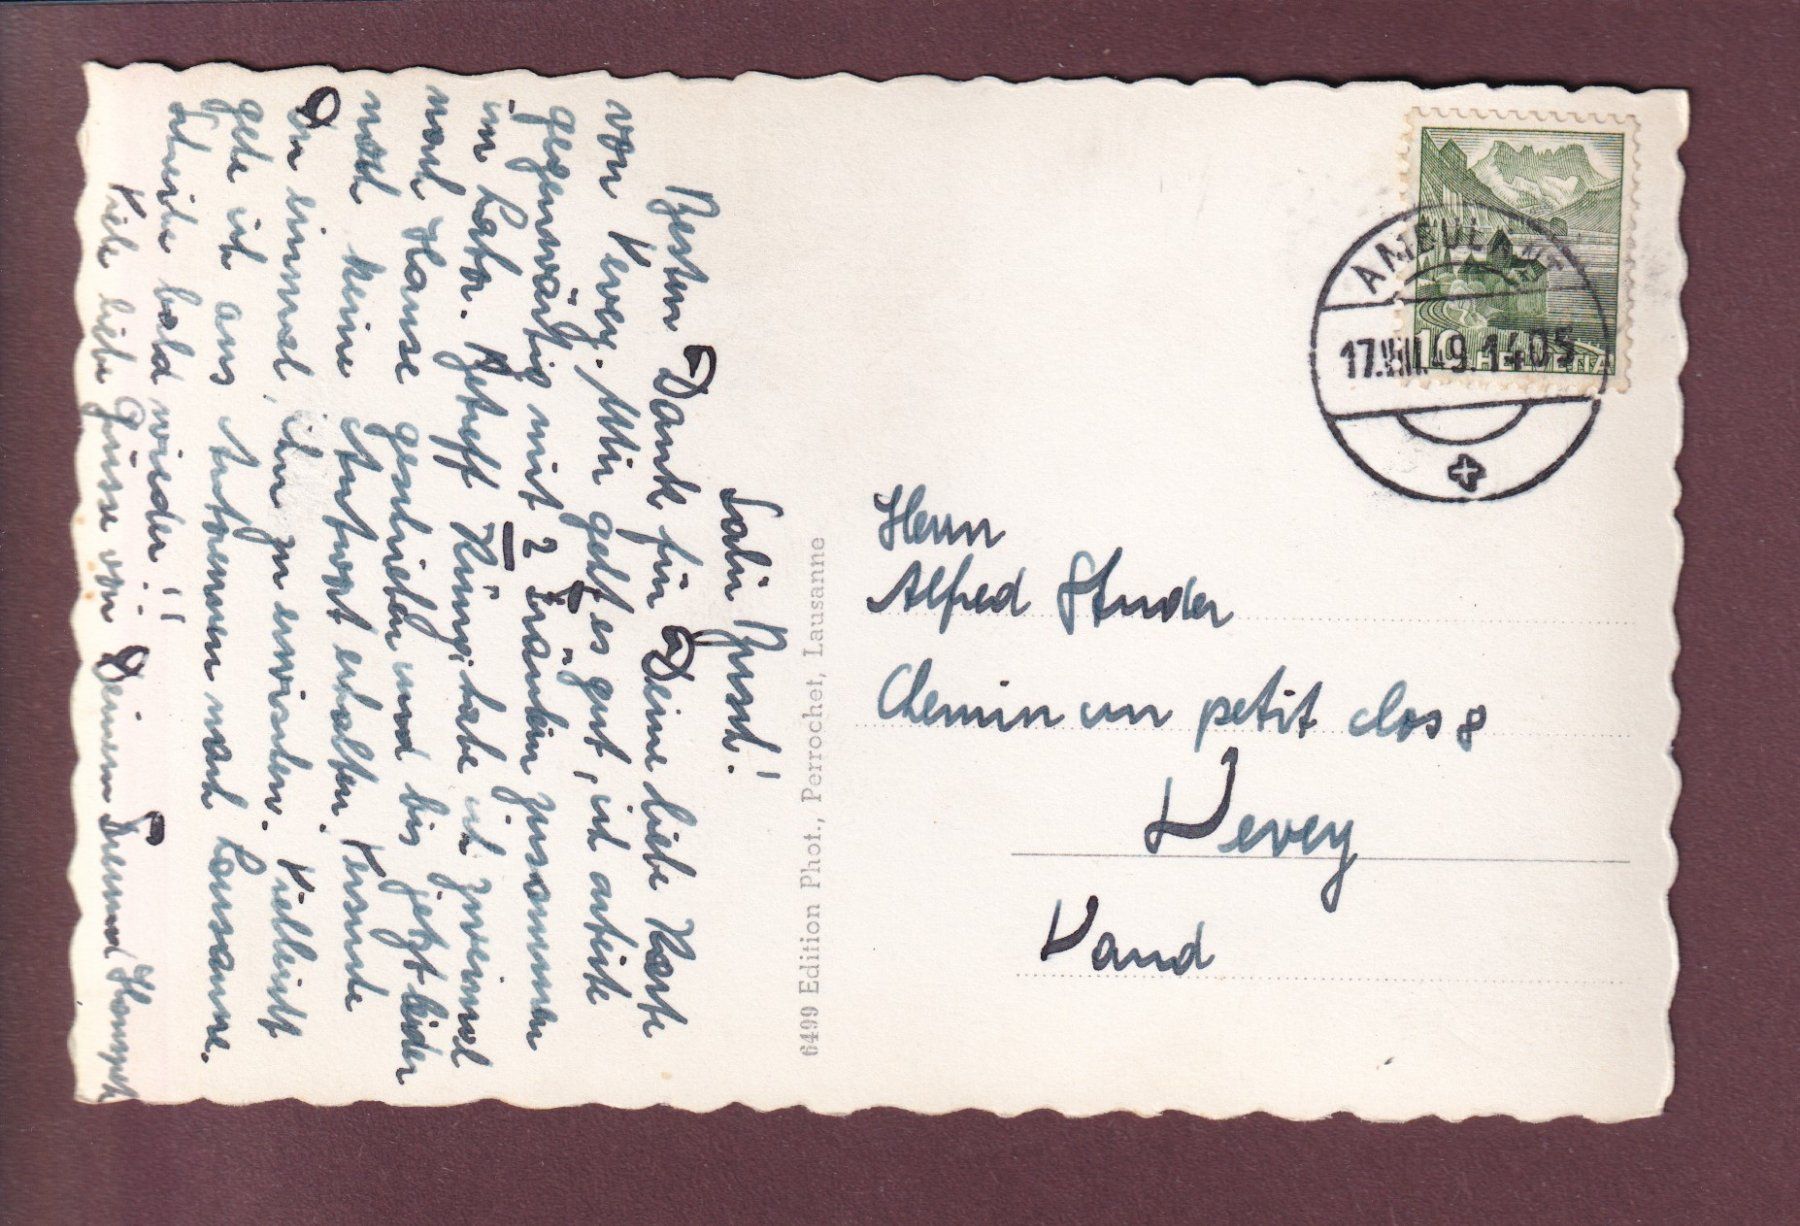 Salü Bursch!
Besten Dank für Deine liebe Karte
von Vevey. Mir geht es gut, ich arbeite
gegenwärtig mit 2 Fräulein zusammen
im Labor. Betreff Küng: habe ich zweimal
nach Hause geschrieben und bis jetzt leider
noch keine Antwort erhalten. Versuche
Du einmal, ihn zu erwischen. Vielleicht
gehe ich ans Autorennen nach Lausanne.
Schreibe bald wieder!!
Viele liebe Grüsse von Deinem Freund
6499 Edition Phot., Perrochet, Lausanne
AMBULANT
17.VIII.49.1405
10 HELVETIA
Herrn
Alfred Studer
Chemin un petit clos 8
Vevey
Vaud